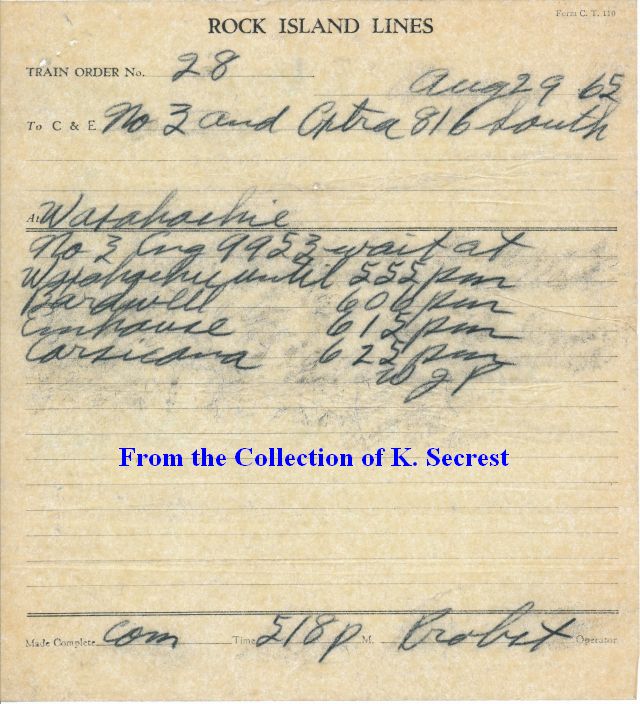 Form C. T. 110
ROCK ISLAND LINES
TRAIN ORDER No. 28
Aug 29 65
To C & E No 3 and Extra 816 South
At Waxahachie
No 3 Eng 9953 wait at
Waxahachie until 555 pm
Bardwell 606 pm
Emhouse 615 pm
Corsicana 625 pm
WJP
From the Collection of K. Secrest
Made Complete com Time 518 p M. Probst Operator